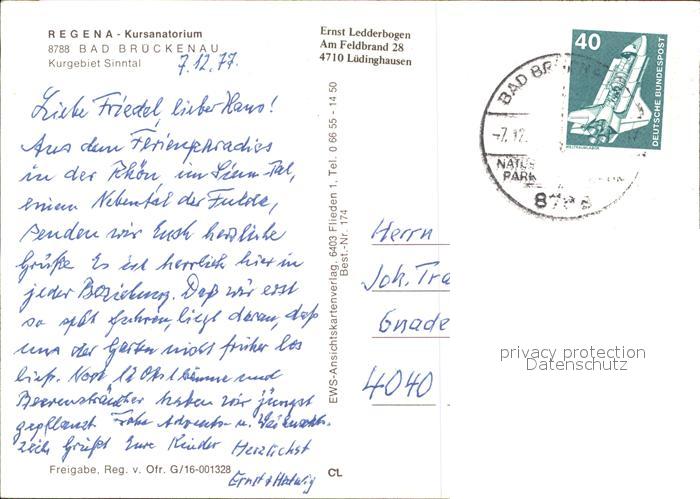 REGENA - Kursanatorium
8788 BAD BRÜCKENAU
Kurgebiet Sinntal
7.12.77.
Ernst Ledderbogen
Am Feldbrand 28
4710 Lüdinghausen
Liebe Friedel, lieber Hans!
Aus dem Ferienparadies
in der Rhön im Sinn-Tal,
einem Nebental der Fulda,
senden wir Euch herzliche
Grüße. Es ist herrlich hier in
jeder Beziehung. Daß wir erst
so spät fuhren, liegt daran, daß
uns der Garten nicht früher los
ließ. Noch 12 Obstbäume und
Beerensträucher haben wir jüngst
gepflanzt. Frohe Advents- u. Weihnachts-
zeit Grüßt Eure Kinder Herzlichst
Ernst + Hedwig
Freigabe, Reg. v. Ofr. G/16-001328
CL
EWS-Ansichtskartenverlag, 6403 Flieden 1, Tel. 0 66 55 - 14 50
Best.-Nr. 174
40
DEUTSCHE BUNDESPOST
BAD BR
-7.12.
NATUR
PARK
Herrn
Joh. Tra
Gnade
4040
privacy protection
Datenschutz